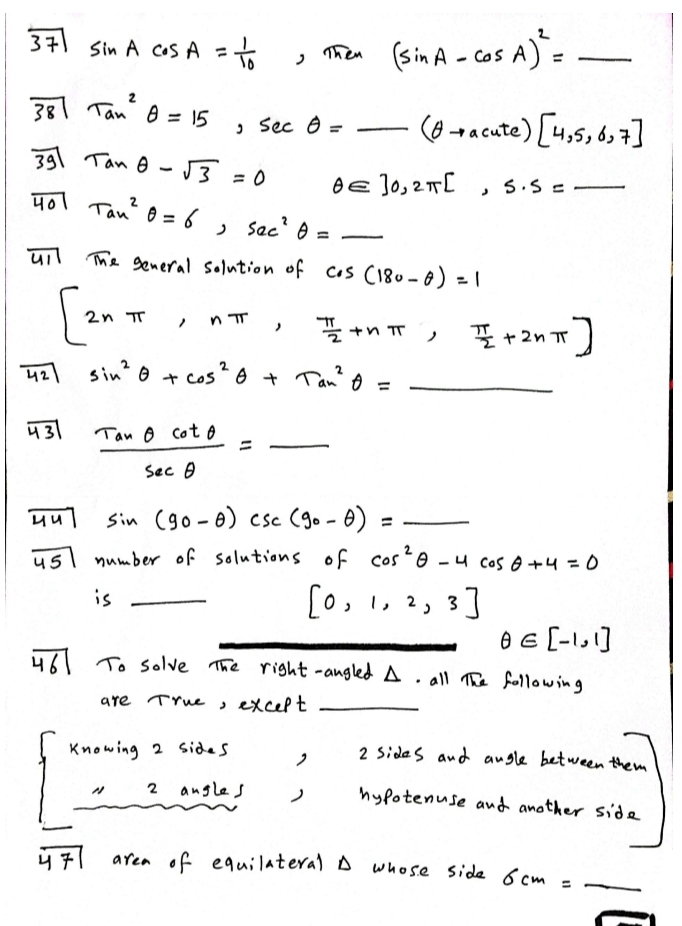 37 sin A cos A = 1/10 , Then (sin A - cos A)² = —
38 Tan² θ = 15 , sec θ = — (θ → acute) [4,5,6,7]
39 Tan θ - √3 = 0 θ ∈ ]0,2π[ , S.S = —
40 Tan² θ = 6 , sec² θ = —
41 The general solution of cos (180 - θ) = 1
[2n π , n π , π/2 + n π , π/2 + 2n π]
42 sin² θ + cos² θ + Tan² θ = —
43 Tan θ cot θ / sec θ = —
44 sin (90 - θ) csc (90 - θ) = —
45 number of solutions of cos² θ - 4 cos θ + 4 = 0
is — [0, 1, 2, 3]
θ ∈ [-1,1]
46 To solve The right-angled Δ . all The following
are True , except —
[Knowing 2 sides , 2 sides and angle between them
" 2 angles , hypotenuse and another side]
47 area of equilateral Δ whose side 6 cm = —